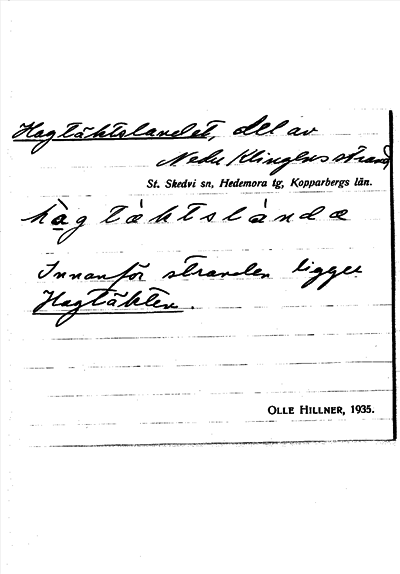 Hagtäktslandet, del av
Nedre Klinglusstrand
St. Skedvi sn, Hedemora tg, Kopparbergs län.
hàgtäktslàndæ
Innanför stranden ligger
Hagtäkten.
OLLE HILLNER, 1935.